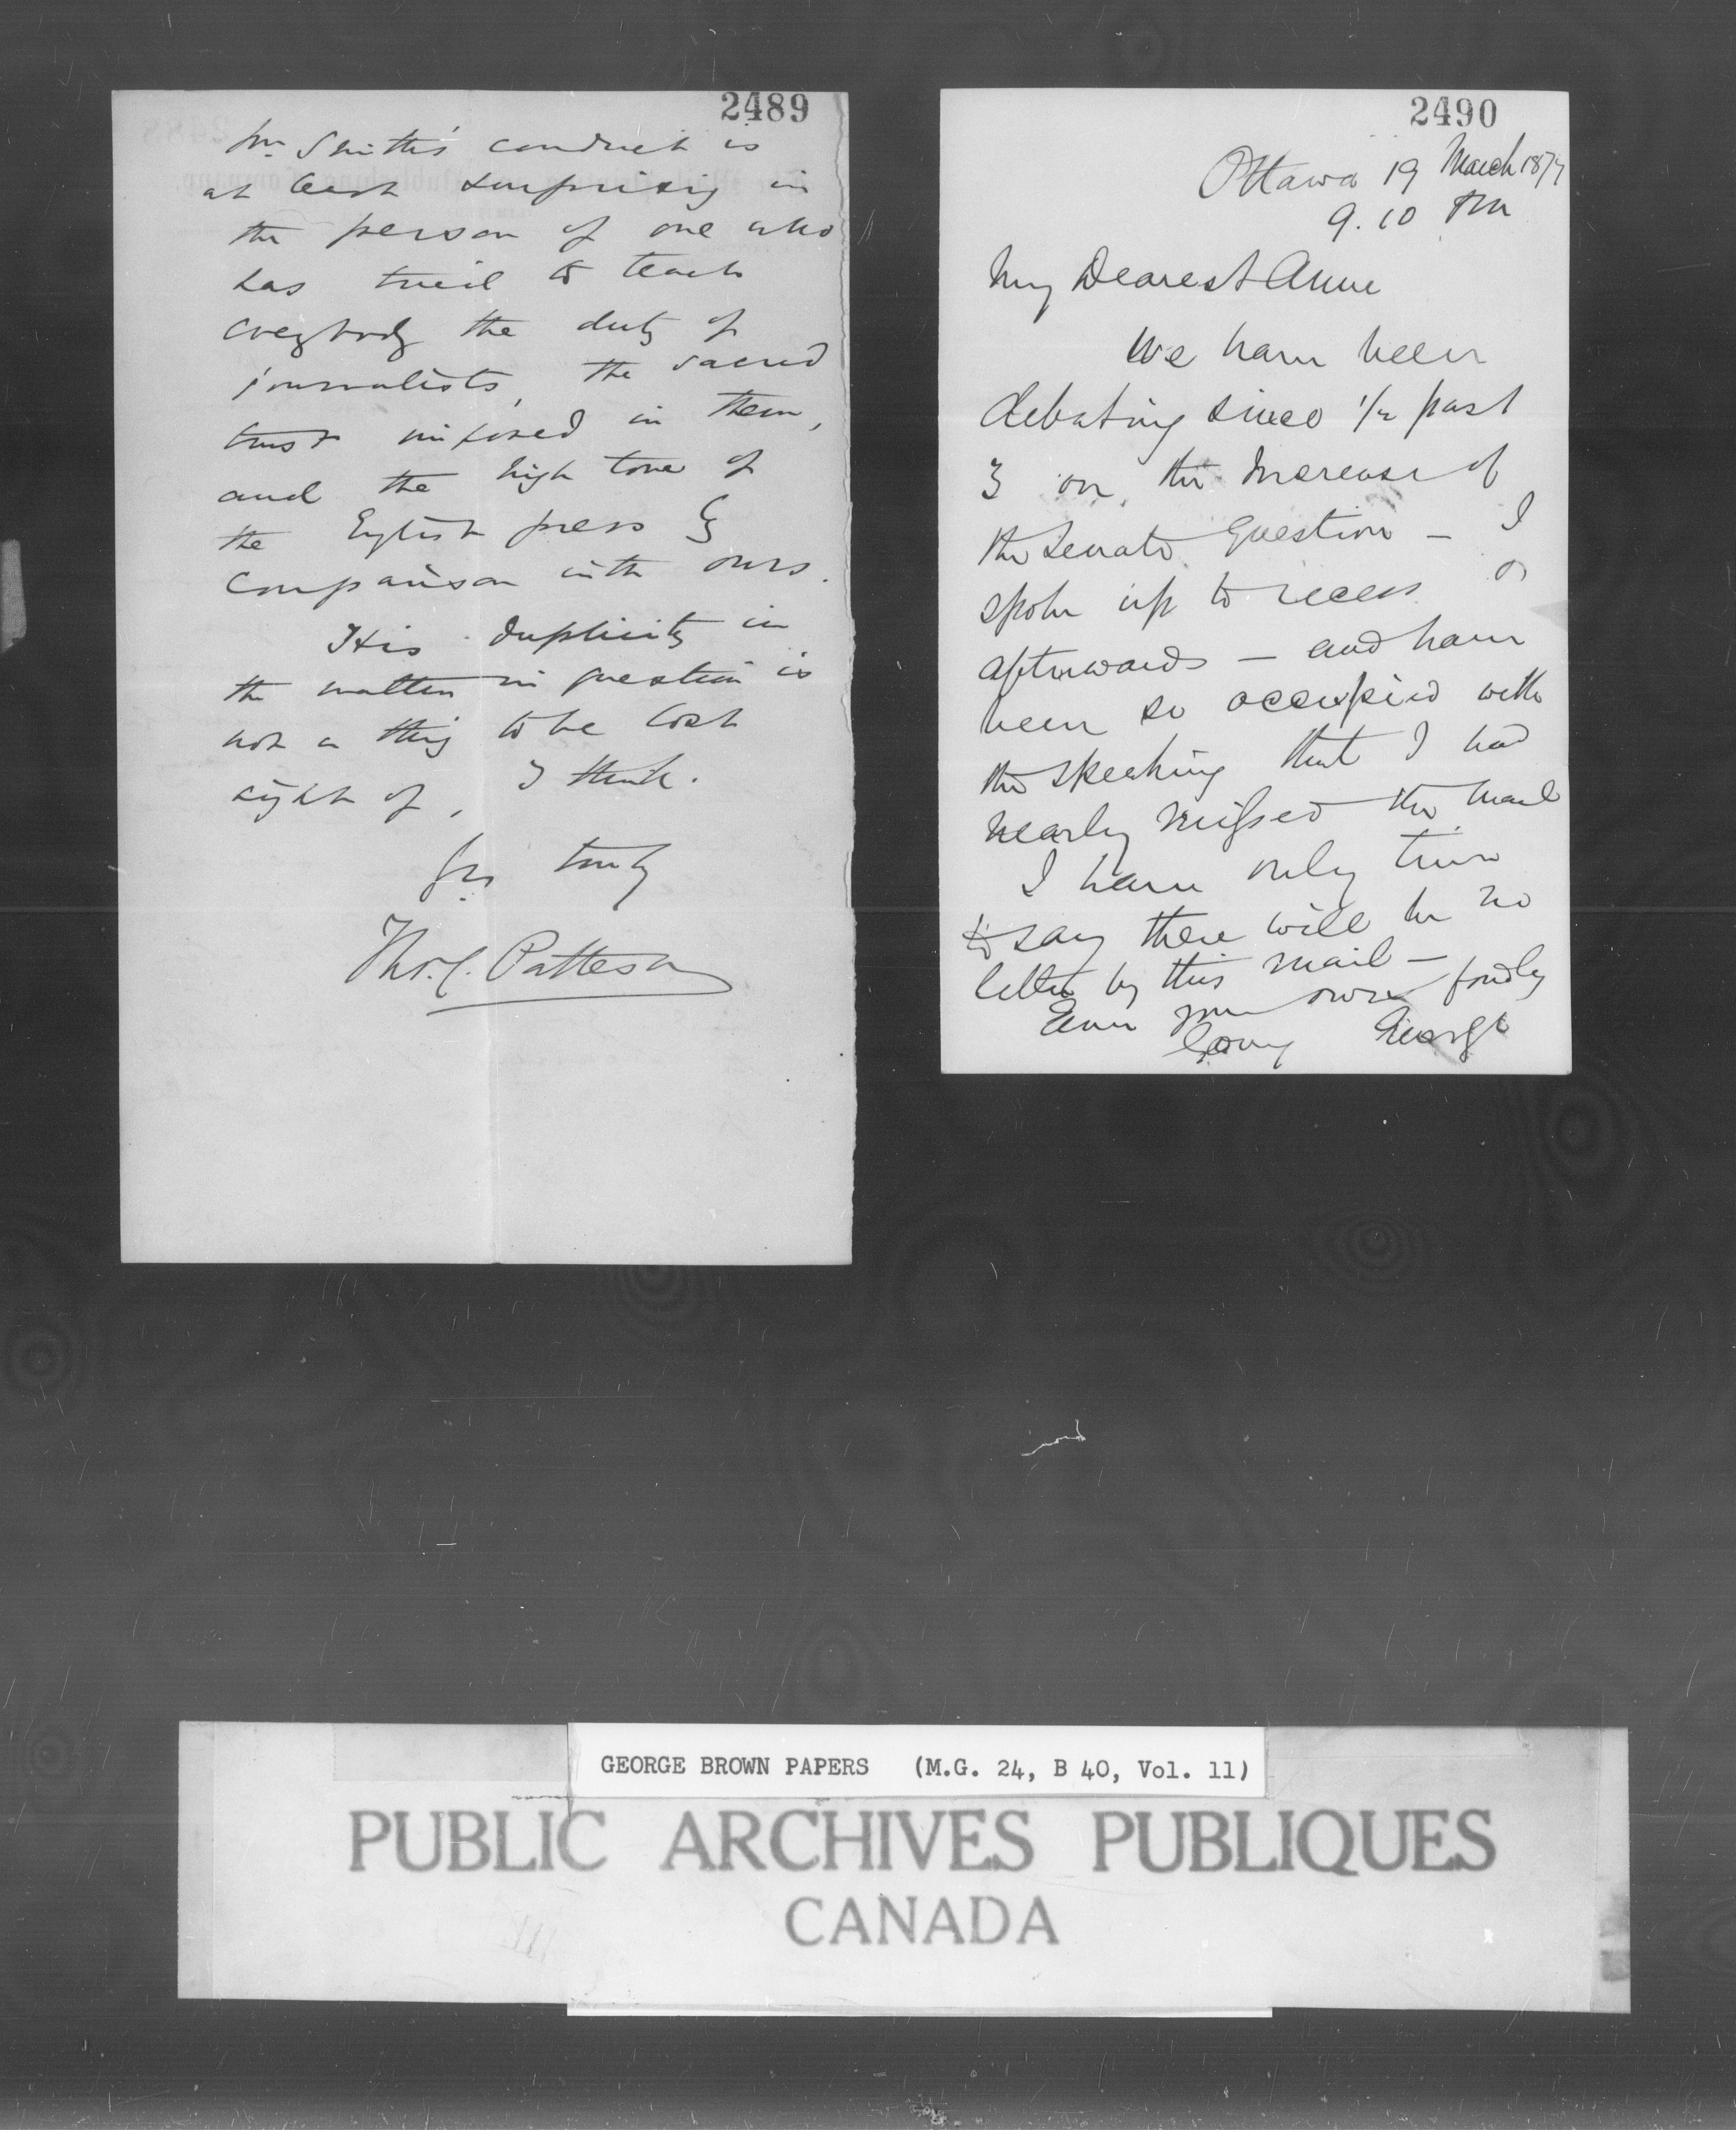 2489
Mr Smith's conduct is
at least surprising in
the person of one who
has tried to teach
everybody the duty of
journalists, the sacred
trust imposed in them,
and the high tone of
the English press by
comparison with ours.
His duplicity in
the matter in question is
not a thing to be lost
sight of, I think.
Yrs truly
Thos. C. Patteson
2490
Ottawa 19 March 1877
9.10 PM
My Dearest Anne
We have been
debating since 1/2 past
3 on the Increase of
the Senate Question — I
spoke up to recess &
afterwards — and have
been so occupied with
the speaking that I had
nearly missed the mail
I have only time
to say there will be no
letter by this mail —
Ever your own fondly
loving George
GEORGE BROWN PAPERS (M.G. 24, B 40, Vol. 11)
PUBLIC ARCHIVES PUBLIQUES
CANADA